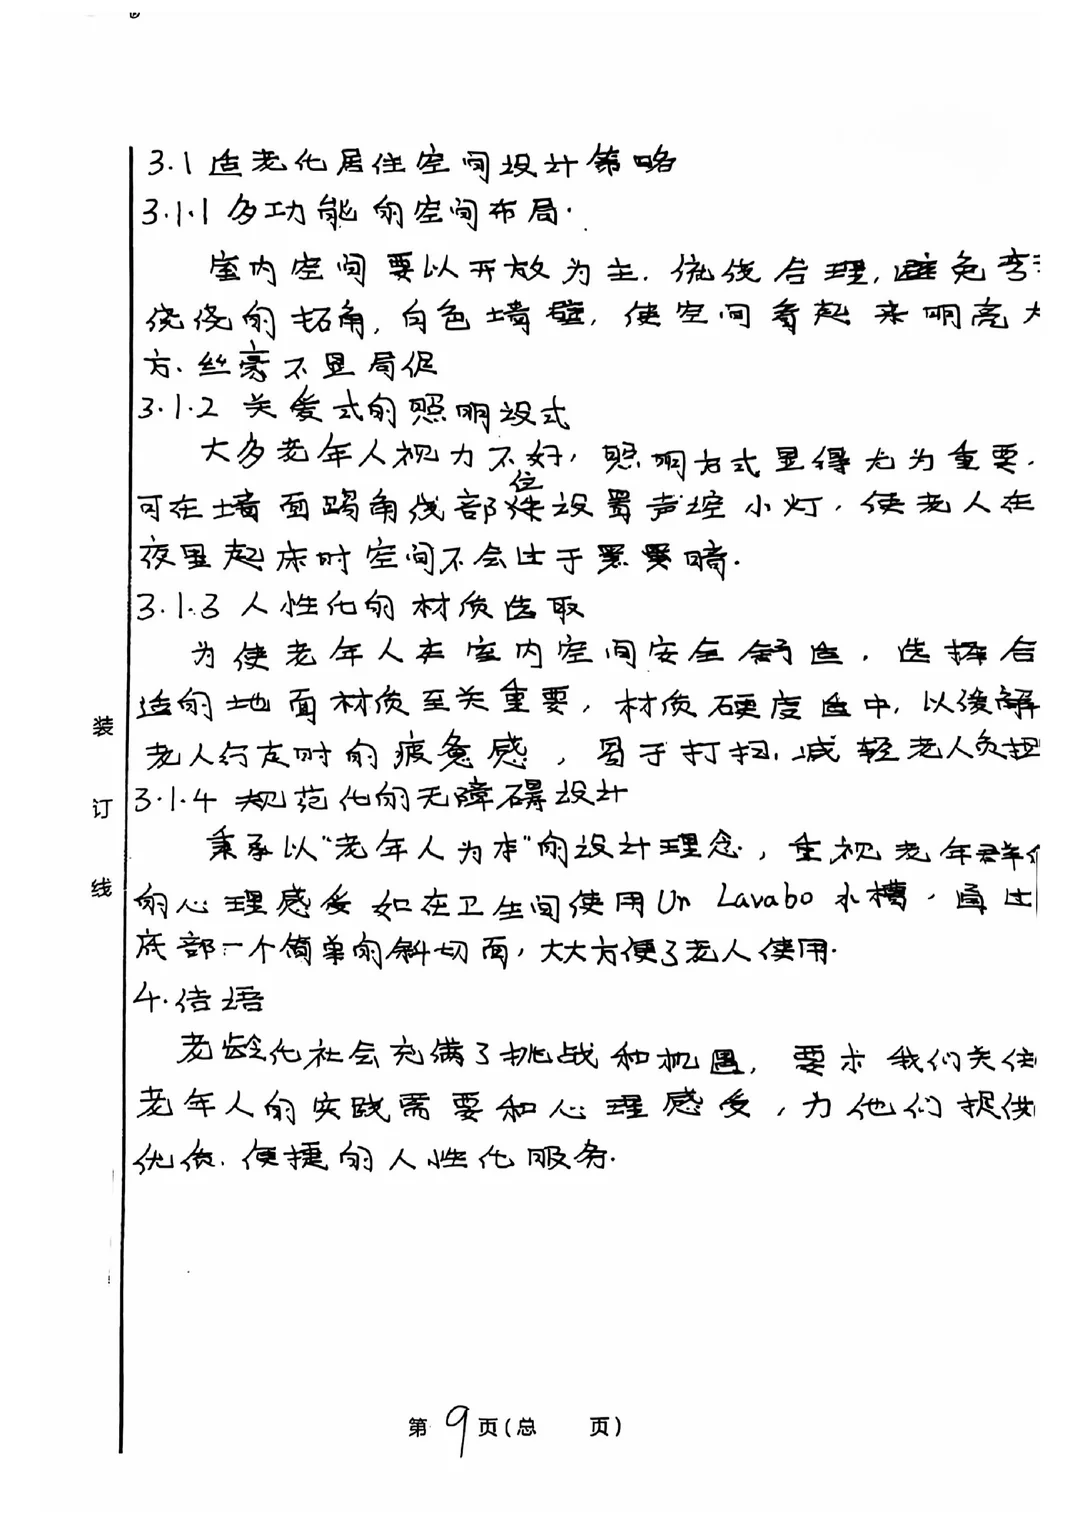 3.1 适老化居住空间设计策略
3.1.1 多功能的空间布局.
室内空间要以开放为主.流线合理,避免弯
绕绕的拐角,白色墙壁,使空间看起来明亮大
方.丝毫不显局促
3.1.2 关爱式的照明设式
大多老年人视力不好,照明方式显得尤为重要.
位
可在墙面踢角线部 设置声控小灯.使老人在
夜里起床时空间不会过于黑 暗.
3.1.3 人性化的材质选取
为使老年人在室内空间安全舒适.选择合
适的地面材质至关重要,材质硬度适中.以缓解
老人行走时的疲惫感,易于打扫.减轻老人负担
3.1.4 规范化的无障碍设计
秉承以"老年人为本"的设计理念,重视老年群
的心理感受 如在卫生间使用Un Lavabo水槽.通过
底部一个简单的斜切面,大大方便了老人使用.
4.结语
老龄化社会充满了挑战和机遇.要求我们关注
老年人的实践需要和心理感受,为他们提供
优质.便捷的人性化服务.
装
订
线
第9页(总 页)